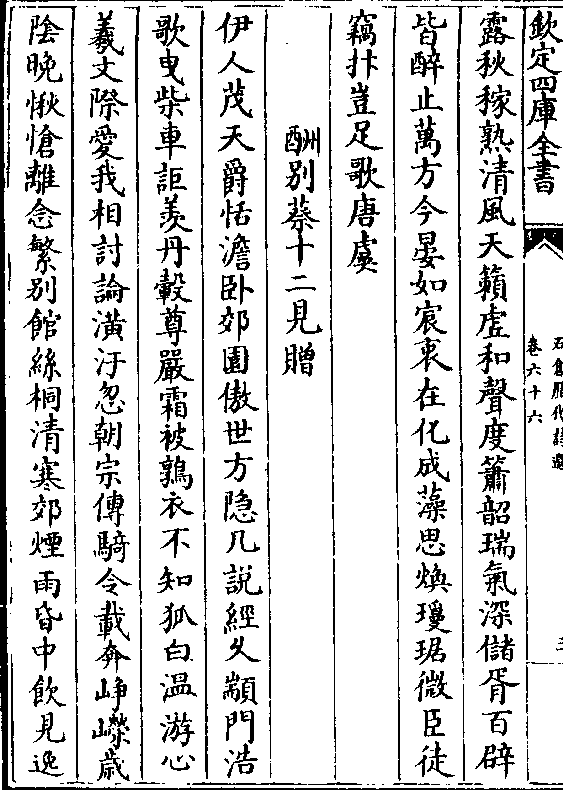 欽定四庫全書
石倉歷代詩選
卷六十六
三
露秋稼熟清風天籟虛和聲度簫韶瑞氣深儲胥百辟
皆醉止萬方今晏如宸衷在化成藻思煥瓊琚微臣徒
竊抃豈足歌唐虞
酬別蔡十二見贈
伊人茂天爵恬澹卧郊園傲世方隱几說經久顓門浩
歌曳柴車詎羨丹轂尊嚴霜被鶉衣不知狐白温游心
羲文際愛我相討論潢汙忽朝宗傳騎令載奔崢嶸歲
陰晚愀愴離念繁別館絲桐清寒郊煙雨昏中飲見逸